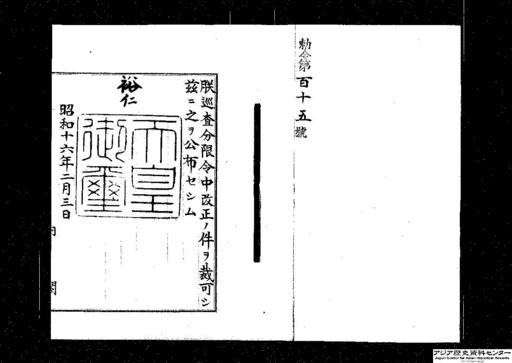 勅令第百十五號
朕巡査分限令中改正ノ件ヲ裁可シ
茲ニ之ヲ公布セシム
裕仁
天皇
御璽
昭和十六年二月三日
内 閣
アジア歴史資料センター
Japan Center for Asian Historical Records